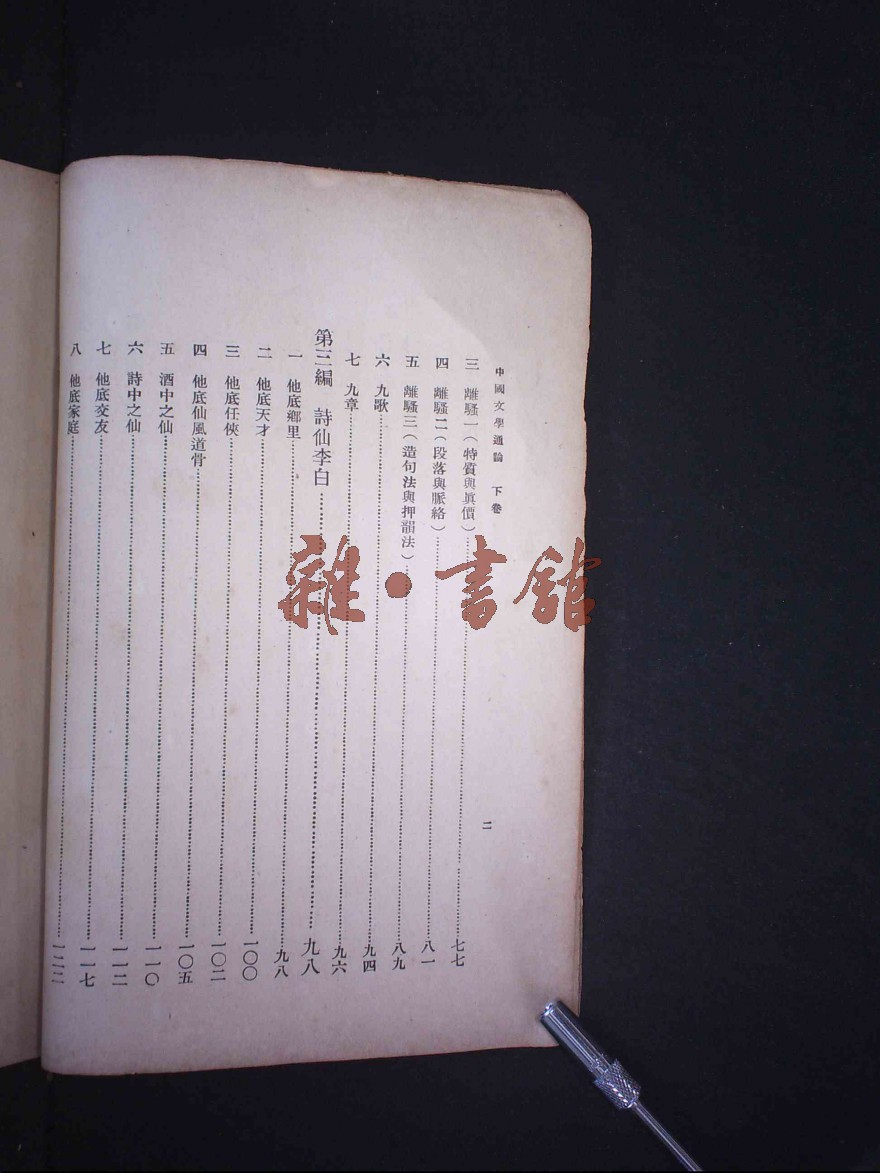 中國文學通論　下卷
二
三　離騷一（特質與眞價）……七七
四　離騷二（段落與脈絡）……八一
五　離騷三（造句法與押韻法）……八九
六　九歌……九四
七　九章……九六
第三編　詩仙李白……九八
一　他底鄉里……九八
二　他底天才……一〇〇
三　他底任俠……一〇二
四　他底仙風道骨……一〇五
五　酒中之仙……一一〇
六　詩中之仙……一一二
七　他底交友……一一七
八　他底家庭……一二二
雜·書舘